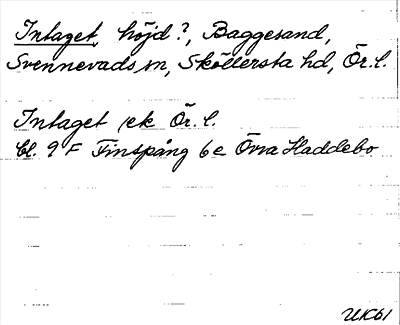 Intaget, höjd?, Baggesand,
Svennevads sn, Sköllersta hd, Ör. l.
Intaget /ek Ör. l.
bl. 9 F Finspång 6 e Övra Haddebo
UK61